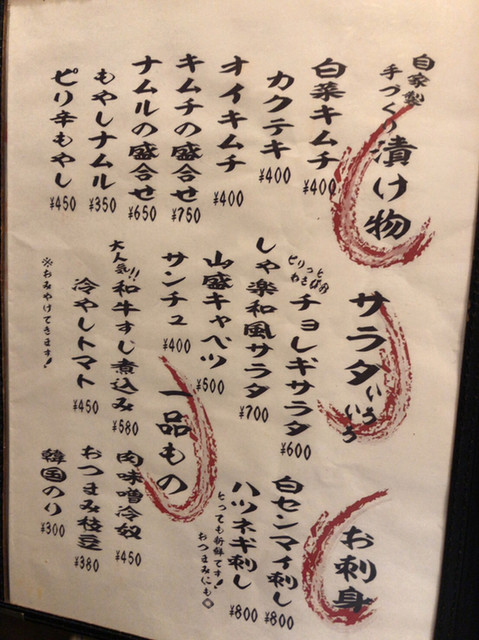 自家製
手づくり
漬け物
白菜キムチ
¥400
カクテキ
¥400
オイキムチ
¥400
キムチの盛合せ
¥750
ナムルの盛合せ
¥650
もやしナムル
¥350
ピリ辛もやし
¥450
サラダいろいろ
ピリっと
わさび入り
チョレギサラダ
¥600
しゃ楽和風サラダ
¥700
山盛キャベツ
¥500
サンチュ
¥400
一品もの
大人気!!
和牛すじ煮込み
¥580
冷やしトマト
¥450
※おみやげできます!
肉味噌冷奴
¥450
おつまみ枝豆
¥380
韓国のり
¥300
お刺身
白センマイ刺し
¥800
ハツネギ刺し
¥800
とっても新鮮です!
おつまみにも◇